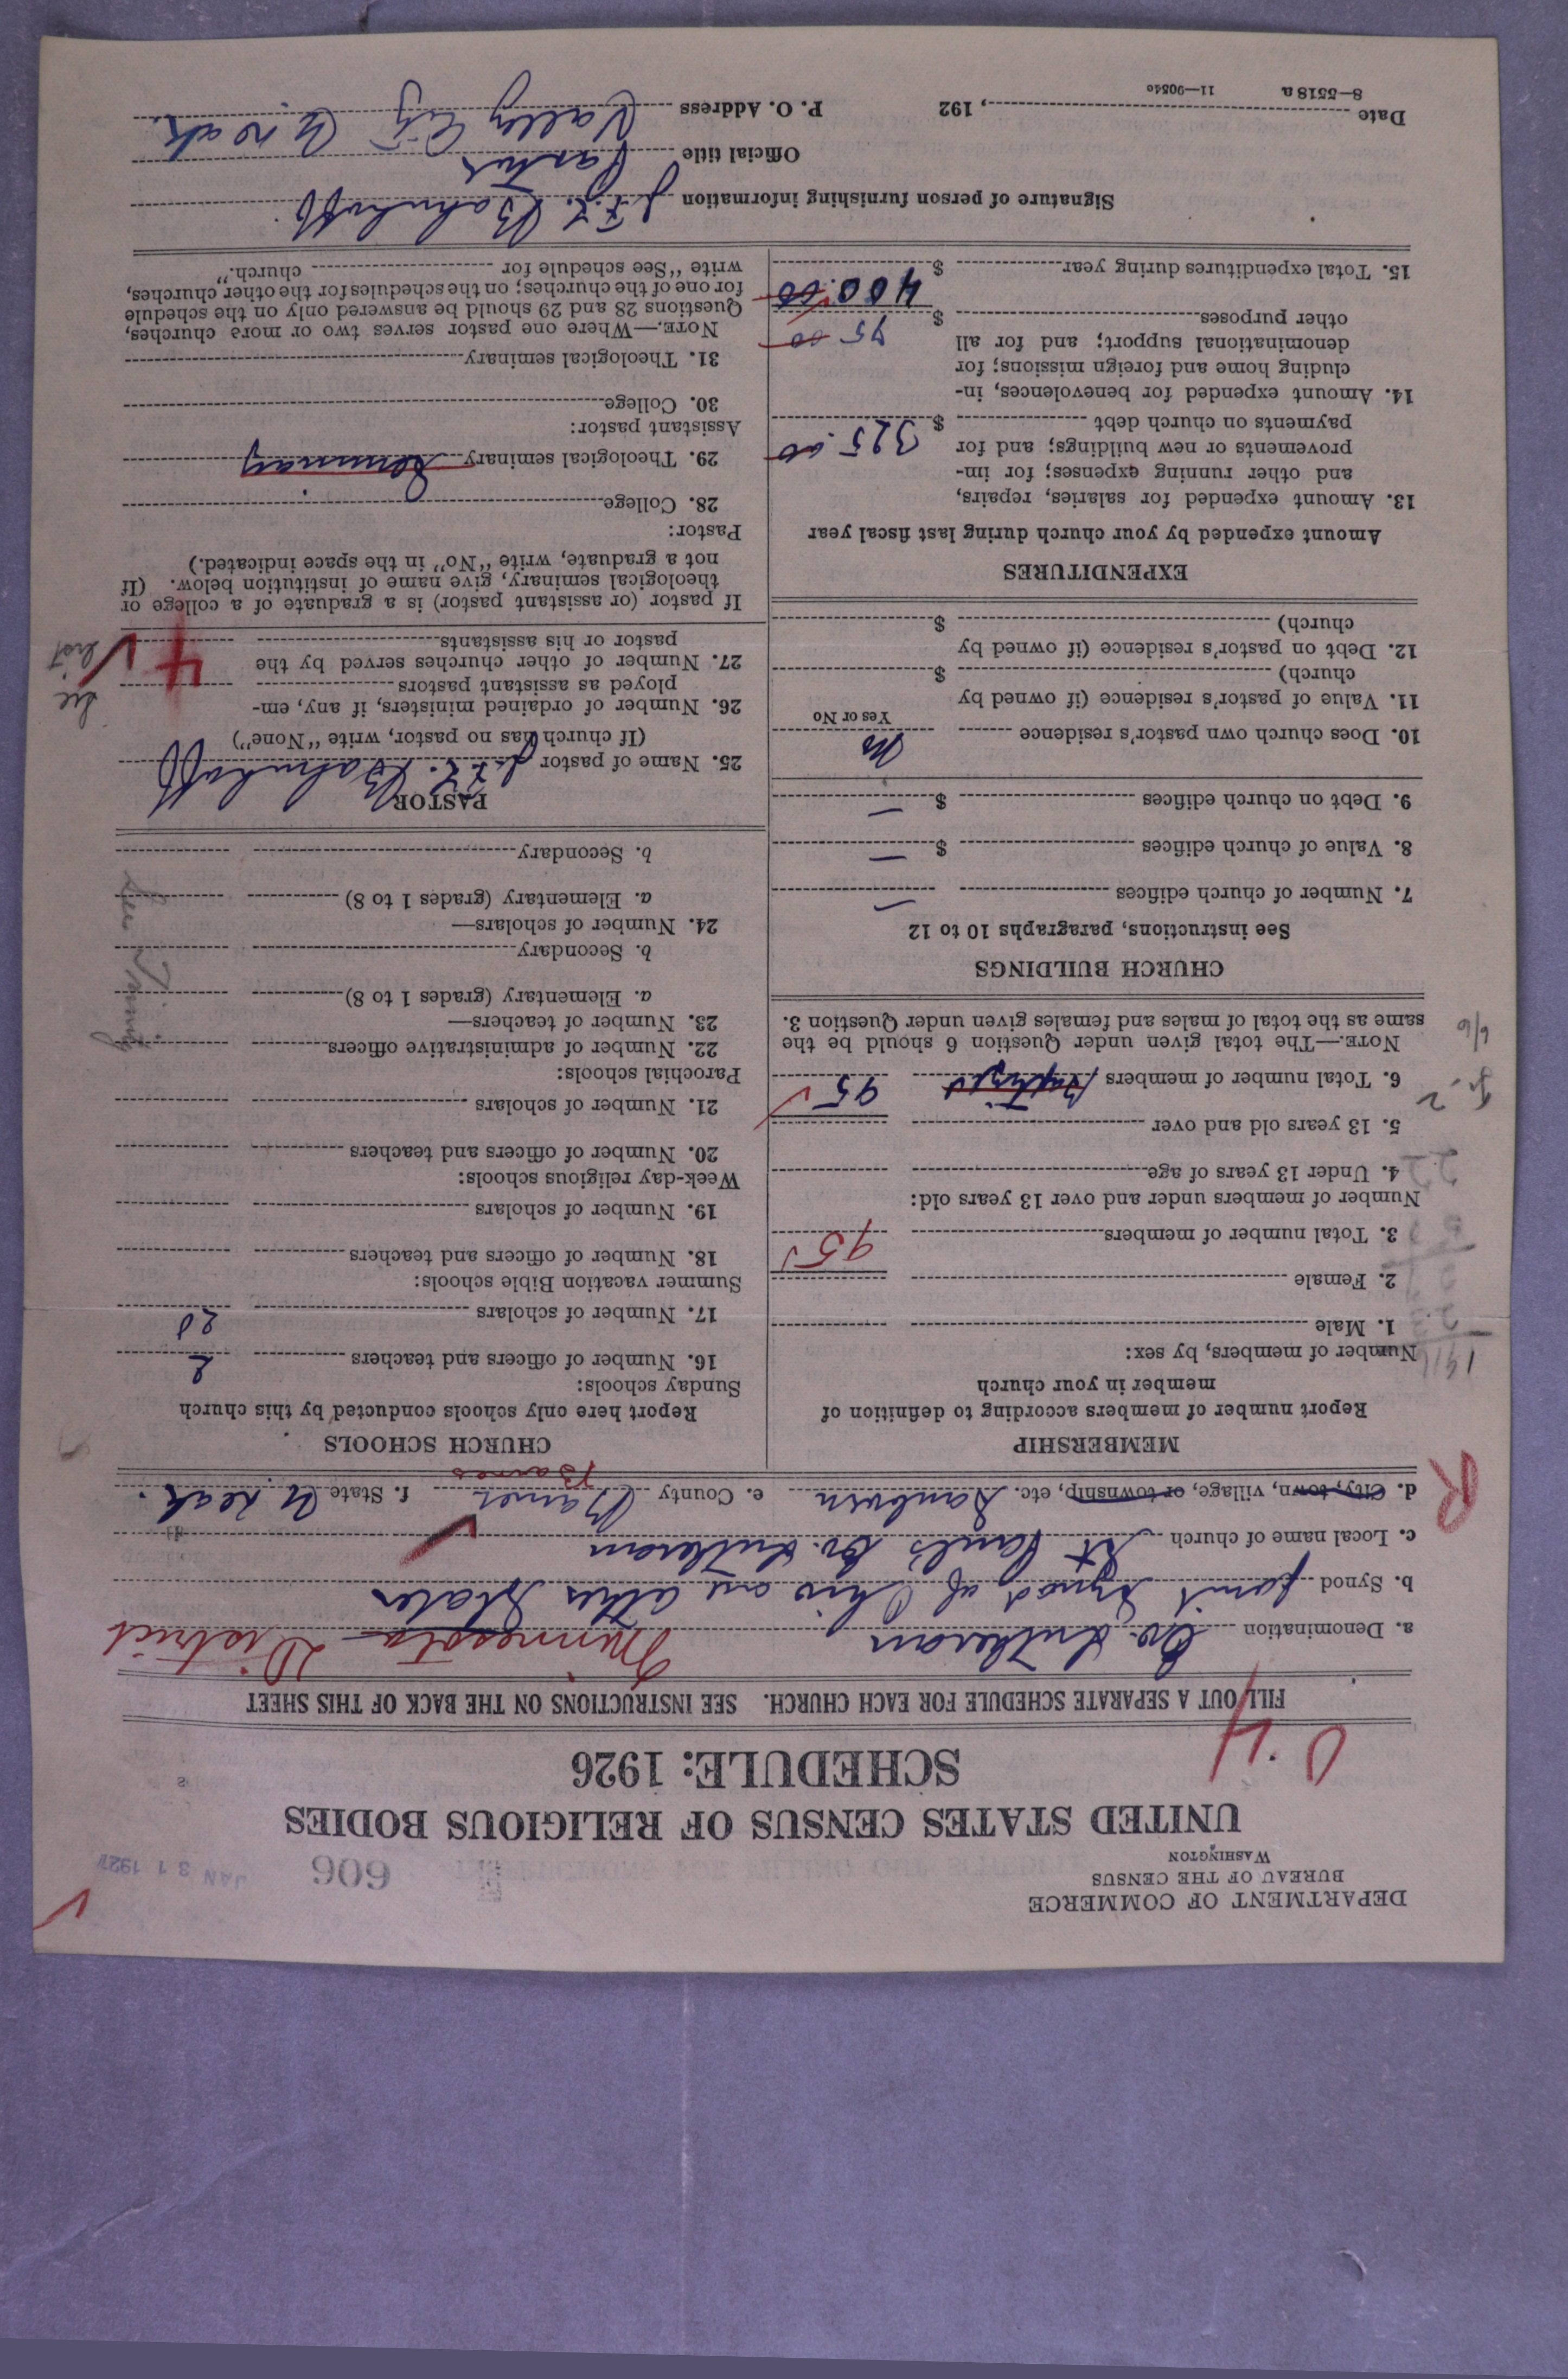 DEPARTMENT OF COMMERCE
BUREAU OF THE CENSUS
WASHINGTON
606
JAN 31 1927
UNITED STATES CENSUS OF RELIGIOUS BODIES
SCHEDULE: 1926
FILL OUT A SEPARATE SCHEDULE FOR EACH CHURCH. SEE INSTRUCTIONS ON THE BACK OF THIS SHEET
a. Denomination Ev. Lutheran Minnesota District
b. Synod Joint Synod of Ohio and other States
c. Local name of church St Paul's Ev. Lutheran
d. City, town, village, or township, etc. Sanborn e. County Barnes Barnes f. State N. Dak.
MEMBERSHIP
Report number of members according to definition of
member in your church
Number of members, by sex:
1. Male
2. Female
3. Total number of members 95
Number of members under and over 13 years old:
4. Under 13 years of age
5. 13 years old and over
6. Total number of members Baptized 95
NOTE.—The total given under Question 6 should be the
same as the total of males and females given under Question 3.
CHURCH BUILDINGS
See instructions, paragraphs 10 to 12
7. Number of church edifices —
8. Value of church edifices $ —
9. Debt on church edifices $ —
10. Does church own pastor's residence No
Yes or No
11. Value of pastor's residence (if owned by
church) $
12. Debt on pastor's residence (if owned by
church) $
EXPENDITURES
Amount expended by your church during last fiscal year
13. Amount expended for salaries, repairs,
and other running expenses; for im-
provements or new buildings; and for
payments on church debt $ 325.00
14. Amount expended for benevolences, in-
cluding home and foreign missions; for
denominational support; and for all
other purposes $ 75 00
15. Total expenditures during year $ 400.00
CHURCH SCHOOLS
Report here only schools conducted by this church
Sunday schools:
16. Number of officers and teachers 2
17. Number of scholars 20
Summer vacation Bible schools:
18. Number of officers and teachers
19. Number of scholars
Week-day religious schools:
20. Number of officers and teachers
21. Number of scholars
Parochial schools:
22. Number of administrative officers
23. Number of teachers—
a. Elementary (grades 1 to 8)
b. Secondary
24. Number of scholars—
a. Elementary (grades 1 to 8)
b. Secondary
PASTOR
25. Name of pastor J. F. L. Bahnhoff
(If church has no pastor, write "None")
26. Number of ordained ministers, if any, em-
ployed as assistant pastors
27. Number of other churches served by the
pastor or his assistants 4
See list
If pastor (or assistant pastor) is a graduate of a college or
theological seminary, give name of institution below. (If
not a graduate, write "No" in the space indicated.)
Pastor:
28. College
29. Theological seminary Seminary
Assistant pastor:
30. College
31. Theological seminary
NOTE.—Where one pastor serves two or more churches,
Questions 28 and 29 should be answered only on the schedule
for one of the churches; on the schedules for the other churches,
write "See schedule for church."
Signature of person furnishing information J. F. L. Bahnhoff
Official title Pastor
Date , 192 P. O. Address Valley City N. Dak.
8—5518 a 11—9054o